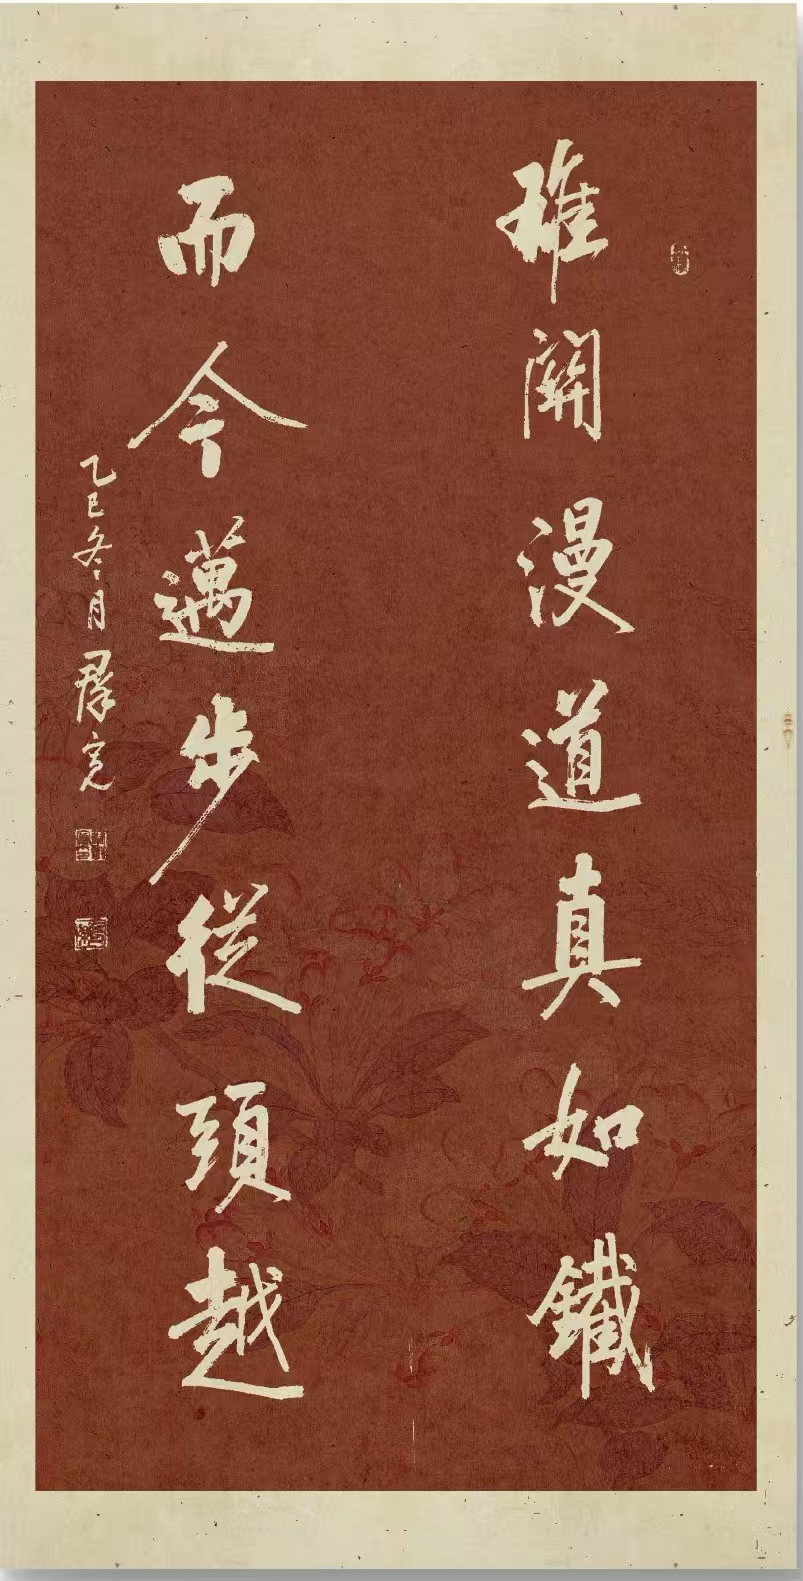 雄關漫道真如鐵
而今邁步從頭越
乙巳冬月群